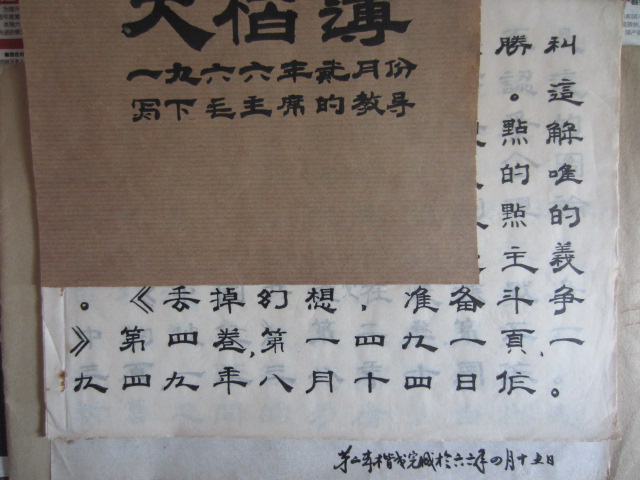 大楷薄
一九六六年贰月份
写下毛主席的教导
勝利
。這
點解
的唯
點的
主義
。《丢掉幻想，准备斗爭
》第四卷，第一四九一頁、一
九四九年八月十四日作。
第二本楷书完成於六六年四月十五日